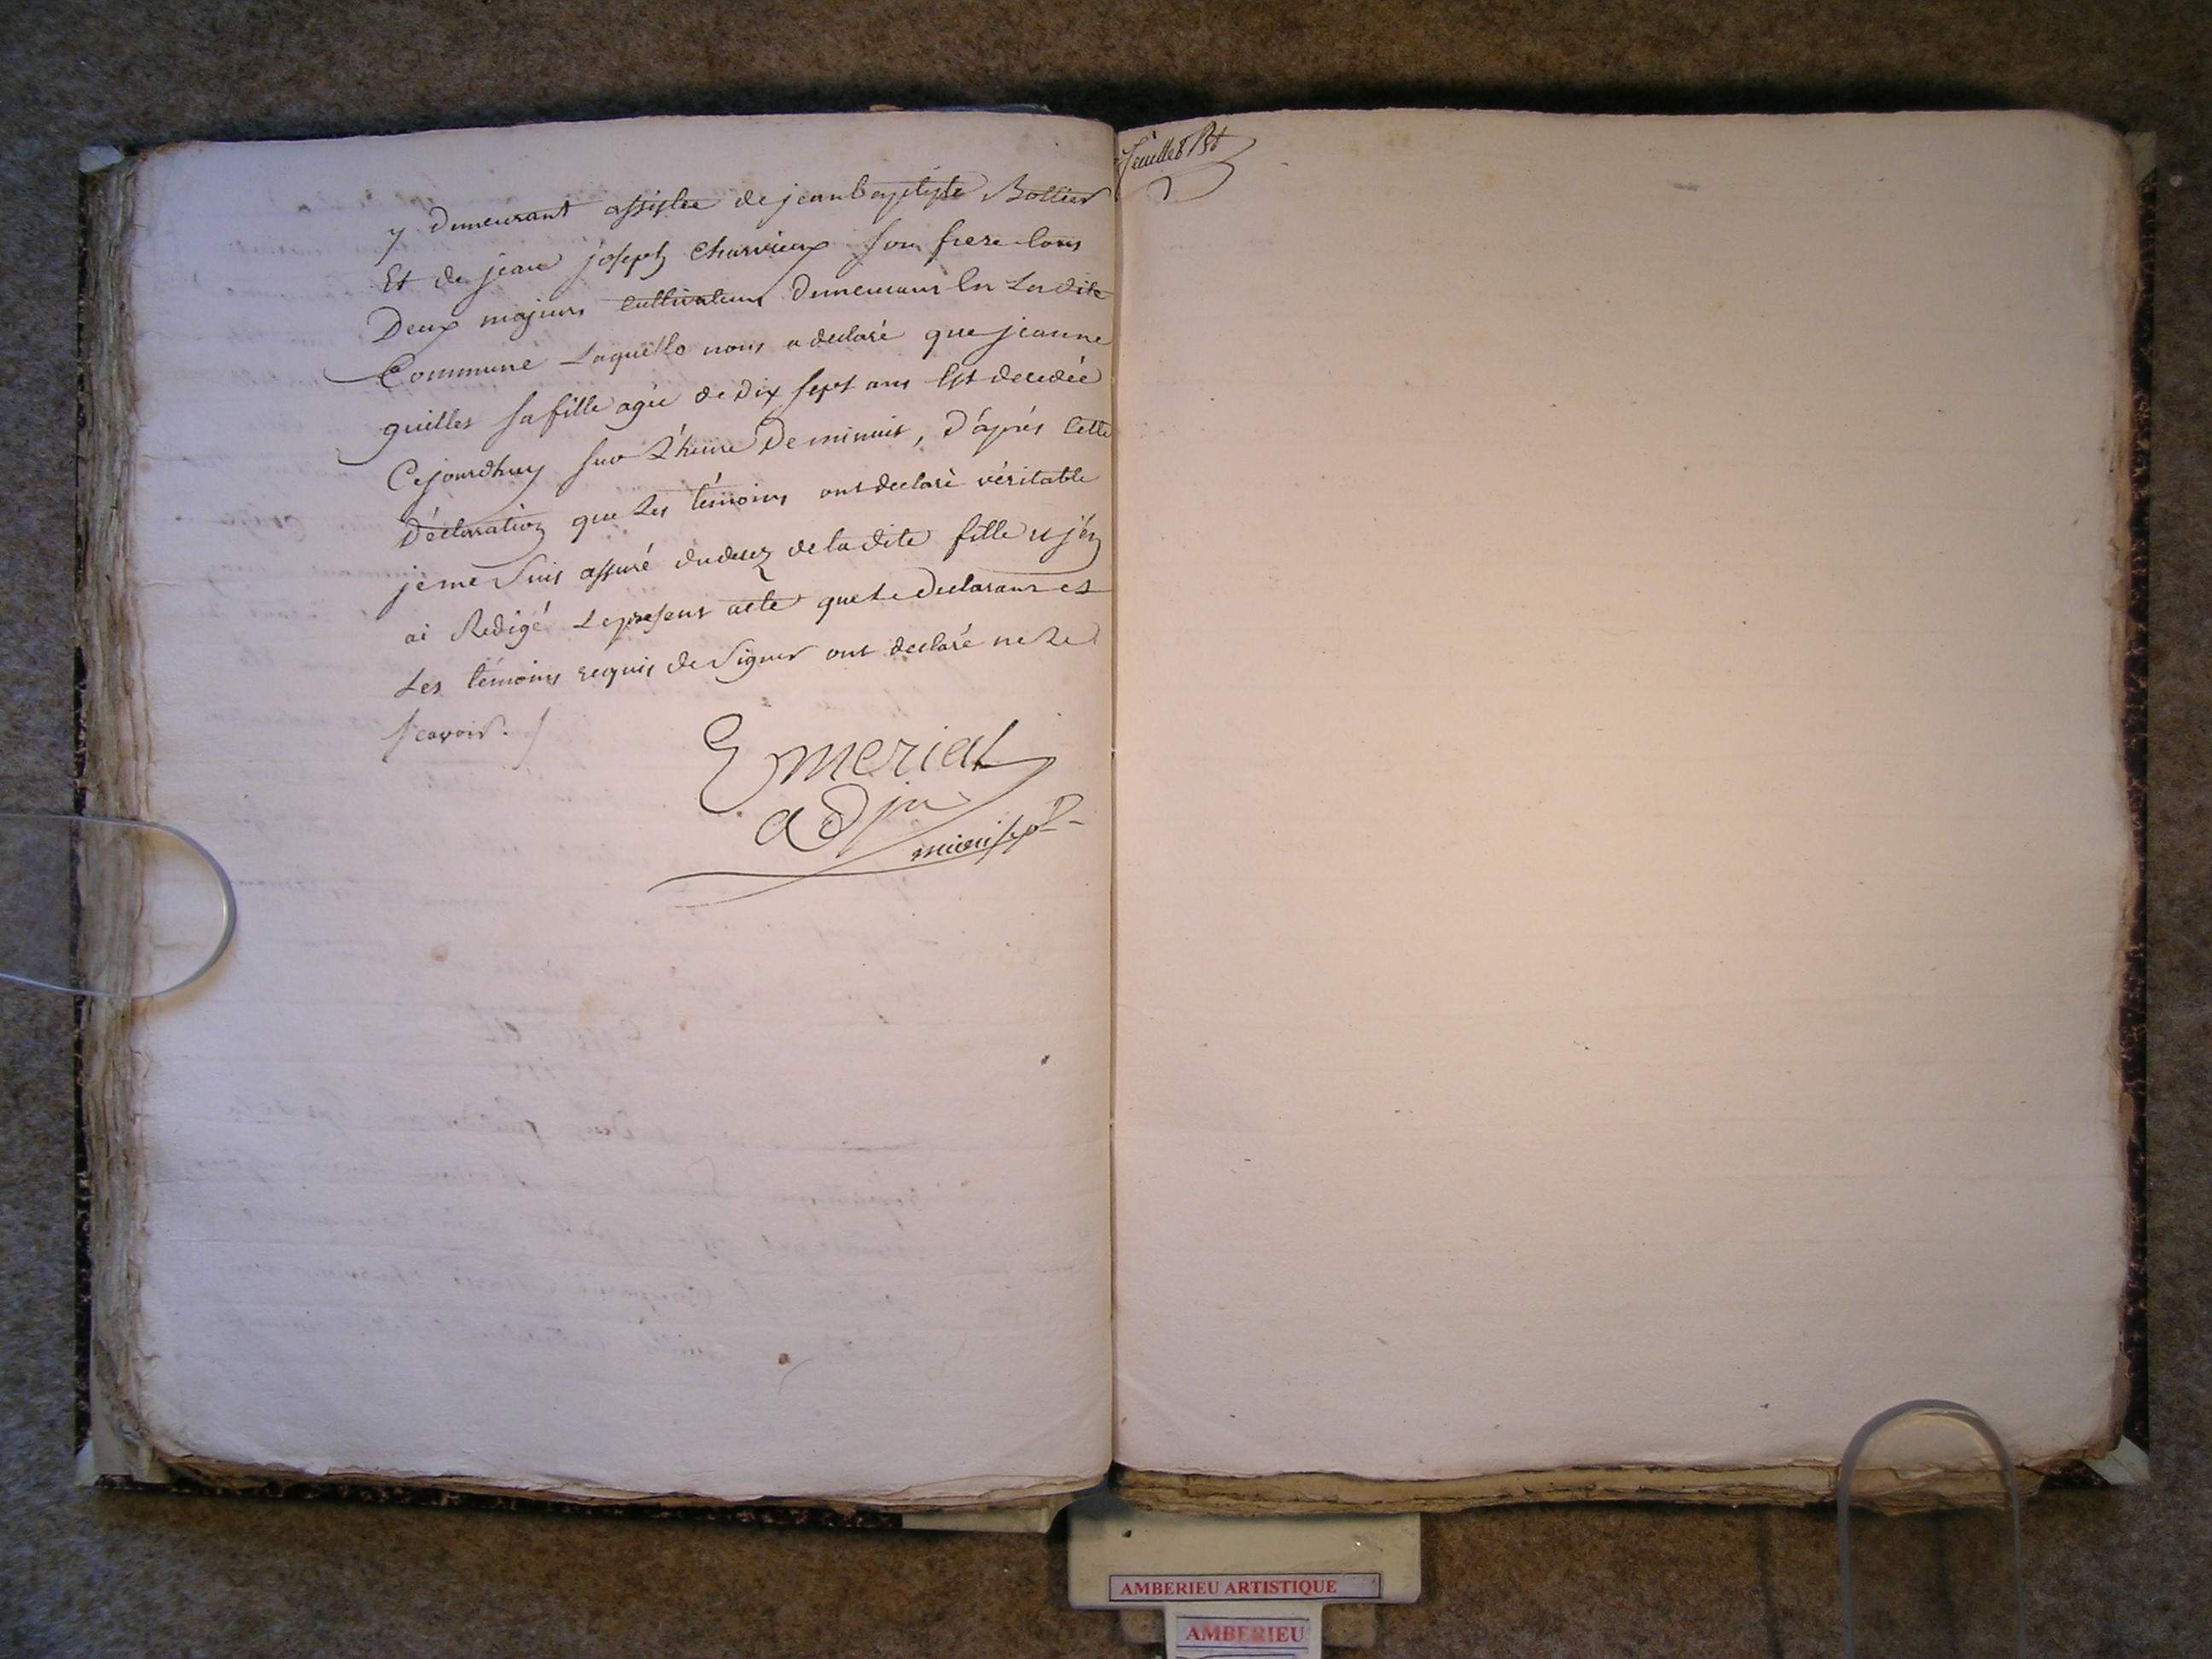 y demeurant assistée de jean baptiste Bottier
Et de jean joseph Charvieux son frere tous
Deux majeurs cultivateurs demeurans En Ladite
Commune Laquelle nous a declaré que jeanne
guilles sa fille agée de dix sept ans Est decedée
Cejourdhuy sur L'heure De minuit, D'aprés Cette
Déclaration que Les témoins ont declaré véritable
je me Suis assuré du decez de la dite fille et j'en
ai Redigé Le present acte que Le declarant et
Les témoins requis de Signer ont declaré ne Le
scavoir. /
Emeriat
adjn
municipal
AMBERIEU ARTISTIQUE
AMBERIEU